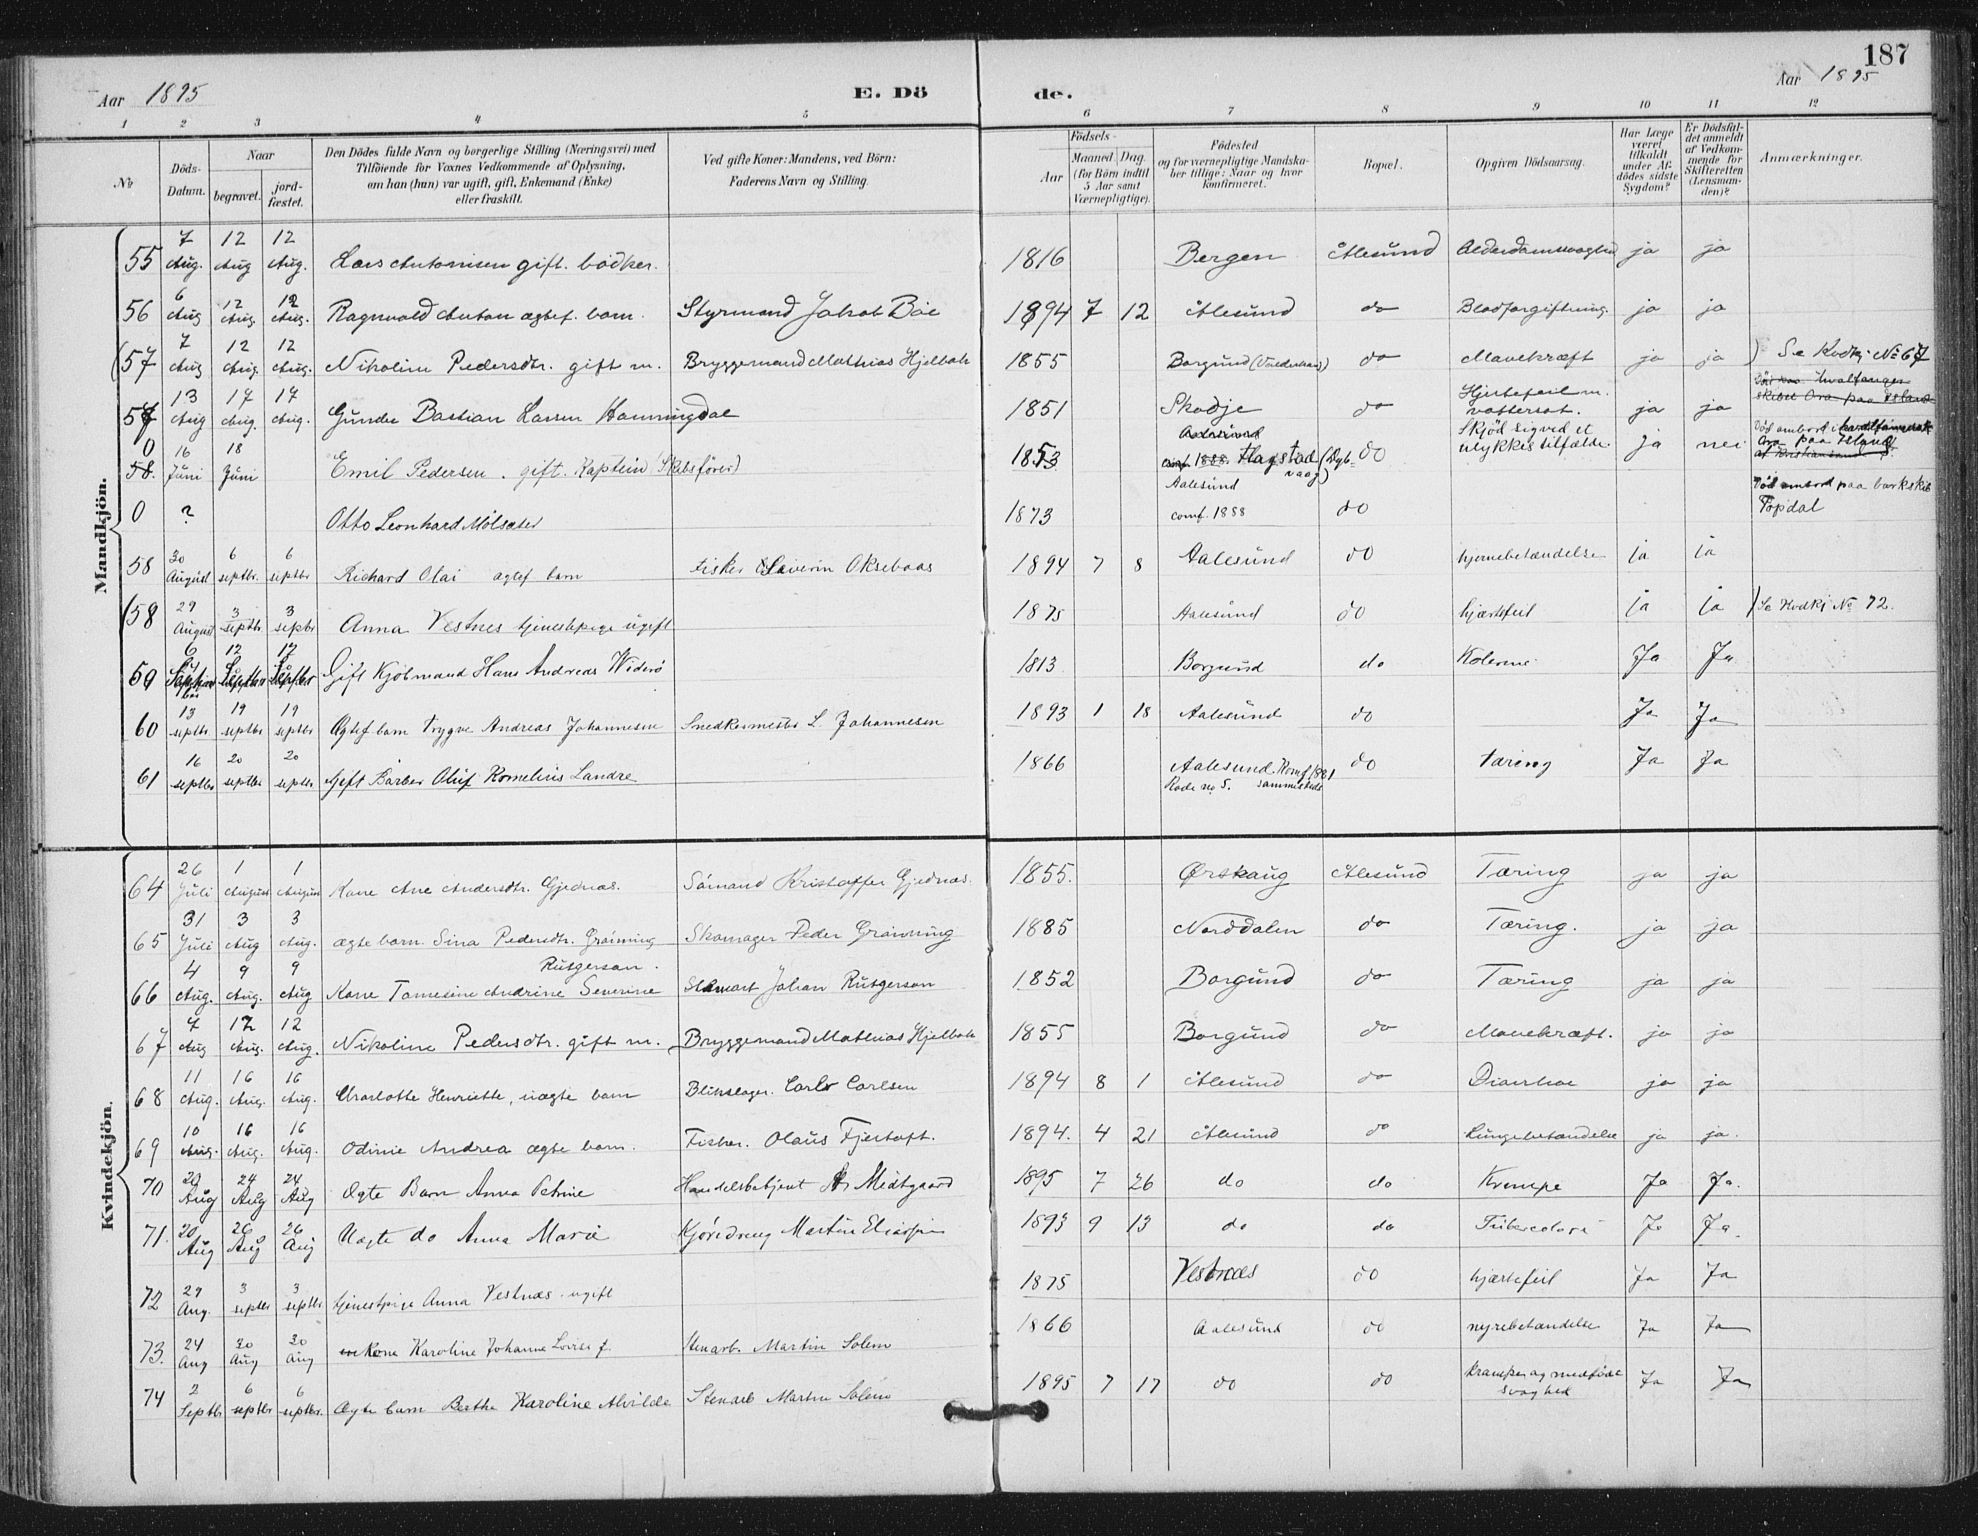 187
Aar 1895 E. Dö de. Aar 1895
1 2 3 4 5 6 7 8 9 10 11 12
No.
Döds-Datum.
Naar
begravet.
jord-fæstet.
Den Dödes fulde Navn og borgerlige Stilling (Næringsvei) med
Tilföiende for Voxnes Vedkommende af Oplysning,
om han (hun) var ugift, gift, Enkemand (Enke)
eller fraskilt.
Ved gifte Koner: Mandens, ved Börn:
Faderens Navn og Stilling.
Födsels-
Aar
Maaned. Dag.
(for Börn indtil
5 Aar samt
Værnepligtige).
Födested
og for værnepligtige Mandska-
ber tillige: Naar og hvor
konfirmeret.
Bopæl.
Opgiven Dödsaarsag.
Har Læge
været
tilkaldt
under Af-
dödes sidste
Sygdom?
Er Dödsfal-
det anmeldt
af Vedkom-
mende for
Skifteretten
(Lensman-
den)?
Anmærkninger.
Mandkjön.
55 7 Aug. 12 Aug 12 Aug. Lars Antonisen gift. bödker. 1816 Bergen Ålesund Alderdomssvaghed ja ja
56 6 Aug 12 Aug. 12 Aug. Ragnvald Anton ægtef. barn. Styrmand Jakob Böe 1894 7 12 Ålesund do Blodforgiftning. ja ja
(57 7 Aug 12 Aug. 12 Aug. Nikoline Pedersdtr. gift m. Bryggemand Mathias Hjelbak 1855 Borgund do Mavekræft ja ja ) Se Kvdkj. No 67
57 13 Aug 17 Aug. 17 Aug. Gunder Bastian Larsen Hammingdal 1851 Skodje do Hjertefeil m. vattersot. ja ja
0 58. 16 Juni 18 Juni Emil Pedersen. gift. Kaptein (Skibsförer) 1853 Hagstad do Skjöd sig ved et ulykkistilfælde. ja nei
0 ? Otto Leonhard Mölsæter 1873 Aalesund comf. 1888 do Död ombord paa barkskib Topdal
58 30 August 6 septbr. 6 septbr Richard Olai ægtef barn Fisker Severin Oksebaas 1894 7 8 Aalesund do hjernebetændelse ja ja
(58 29 August 3 septbr 3 septbr Anna Vestnes tjenestepige ugift 1875 Aalesund do hjærtefeil ja ja ) Se Kvdkj No 72.
59 6 12 12 Gift Kjöbmand Hans Andreas Widerö 1813 Borgund do Ja Ja
60 13 septbr 19 septbr 19 septbr Ægtef barn Trygve Andreas Johannesen Snedkermester L. Johannesen 1893 1 18 Aalesund do Ja Ja
61 16 septbr 20 septbr 20 septbr Gift Barber Oluf Kornelius Landre 1866 Aalesund Komf 1881 Rode no 5. sammesteds do Tæring Ja Ja
Kvindekjön.
64 26 Juli 1 August 1 August Kone Ane Andersdtr. Gjednæs. Sömand Kristoffer Gjednæs. 1855. Ørskaug Ålesund Tæring ja ja
65 31 Juli 3 Aug 3 Aug. ægte barn Sina Pedersdtr. Grönning Skomager Peder Grönning 1885 Norddalen do Tæring. ja ja
66 4 Aug. 9 Aug. 9 Aug Kone Tomesine Andrine Severine Rutgerson. Johan Rutgerson 1852 Borgund do Tæring ja ja
67 7 Aug 12 Aug. 12 Aug. Nikoline Pedersdtr. gift m. Bryggemand Mathias Hjelbak 1855 Borgund do Mavekræft. ja ja
68 11 Aug. 16 Aug. 16 Aug. Charlotte Henriette, uægte barn Blikslager. Carl Carlsen 1894 8 1 Ålesund do Diarrhoe ja ja
69 10 Aug. 16 Aug. 16 Aug. Odinie Andrea ægte barn. Fisker. Olaus Fjertoft. 1894. 4 21 Ålesund do Lungebetændelse ja ja.
70 20 Aug 24 Aug 24 Aug Ægte Barn Anna Petrine Handelsbetjent Midtgaard 1895 7 26 do do Krampe Ja Ja.
71. 20 Aug 26 Aug 26 Aug Uægte do Anna Marie Kjöredreng Martin 1893 9 13 do do Ja Ja.
72 29 Aug. 3 septbr 3 septbr tjenestpige Anna Vestnæs. ugift 1875 Vestnæs do hjærtefeil Ja Ja
73. 24 Aug 30 Aug 30 Aug Kone Karoline Johanne Lovise f. Stenarb. Martin Solem 1866 Aalesund do nyrebetændelse Ja Ja
74 2 Septbr 6 septbr 6 septbr. Ægte barn Berthe Karoline Alvilde Stenarb Martin Solem 1895 7 17 do do Kramper og medfödt svaghed Ja Ja